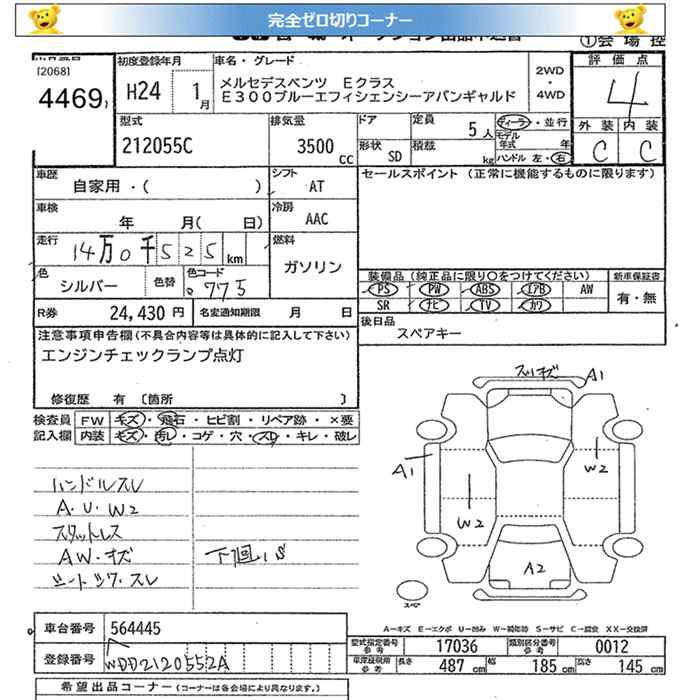 完全ゼロ切りコーナー
①会場控
[2068]
4469
初度登録年月
H24 1月
車名・グレード
メルセデスベンツ Eクラス
E300ブルーエフィシェンシーアバンギャルド
2WD
・
4WD
評価点
4
外装 内装
C C
型式
212055C
排気量
3500 CC
ドア
形状 SD
定員 5人
積載 kg
ディーラー・並行
モデル年式 年
ハンドル 左・右
車歴
自家用・( )
シフト AT
セールスポイント (正常に機能するものに限ります)
車検
年 月( 日)
冷房 AAC
走行
14万0千525km
燃料
ガソリン
色
シルバー
色替
色コード
775
装備品(純正品に限り○をつけてください)
PS PW ABS エアB AW
SR ナビ TV カワ
新車保証書
有・無
R券 24,430円
名変通知期限 月 日
後日品
スペアキー
注意事項申告欄(不具合内容等は具体的に記入して下さい)
エンジンチェックランプ点灯
修復歴 有 〔箇所 〕
検査員記入欄
FW キズ・飛石・ヒビ割・リペア跡・×要
内装 キズ・汚レ・コゲ・穴・スレ・キレ・破レ
ハンドルスレ
A.U.W2
スタットレス
AW.キズ
シートシワ.スレ
下廻.S
スリキズ A1
A1
W2
W2
A2
スペア
A-キズ E-エクボ U-凹み W-補修跡 S-サビ C-腐食 XX-交換済
車台番号 564445
登録番号 WDD2120552A
型式指定番号 参考 17036
類別区分番号 参考 0012
車庫証明用 参考 長さ 487cm 幅 185cm 高さ 145cm
希望出品コーナー(コーナーは各会場により異なります。)